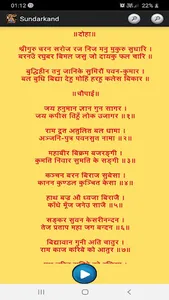 01:12
Sundarkand
॥दोहा॥
श्रीगुरु चरन सरोज रज निज मनु मुकुरु सुधारि ।
बरनउँ रघुबर बिमल जसु जो दायकु फल चारि ॥
बुद्धिहीन तनु जानिके सुमिरौं पवन-कुमार ।
बल बुधि बिद्या देहु मोहिं हरहु कलेस बिकार ॥
॥चौपाई॥
जय हनुमान ज्ञान गुन सागर ।
जय कपीस तिहुँ लोक उजागर ॥१॥
राम दूत अतुलित बल धामा ।
अञ्जनि-पुत्र पवनसुत नामा ॥२॥
महाबीर बिक्रम बजरङ्गी ।
कुमति निवार सुमति के सङ्गी ॥३॥
कञ्चन बरन बिराज सुबेसा ।
कानन कुण्डल कुञ्चित केसा ॥४॥
हाथ बज्र औ ध्वजा बिराजै ।
काँधे मूँज जनेउ साजै ॥५॥
सङ्कर सुवन केसरीनन्दन ।
तेज प्रताप महा जग बन्दन ॥६॥
बिद्यावान गुनी अति चातुर ।
राम काज करिबे को आतुर ॥७॥